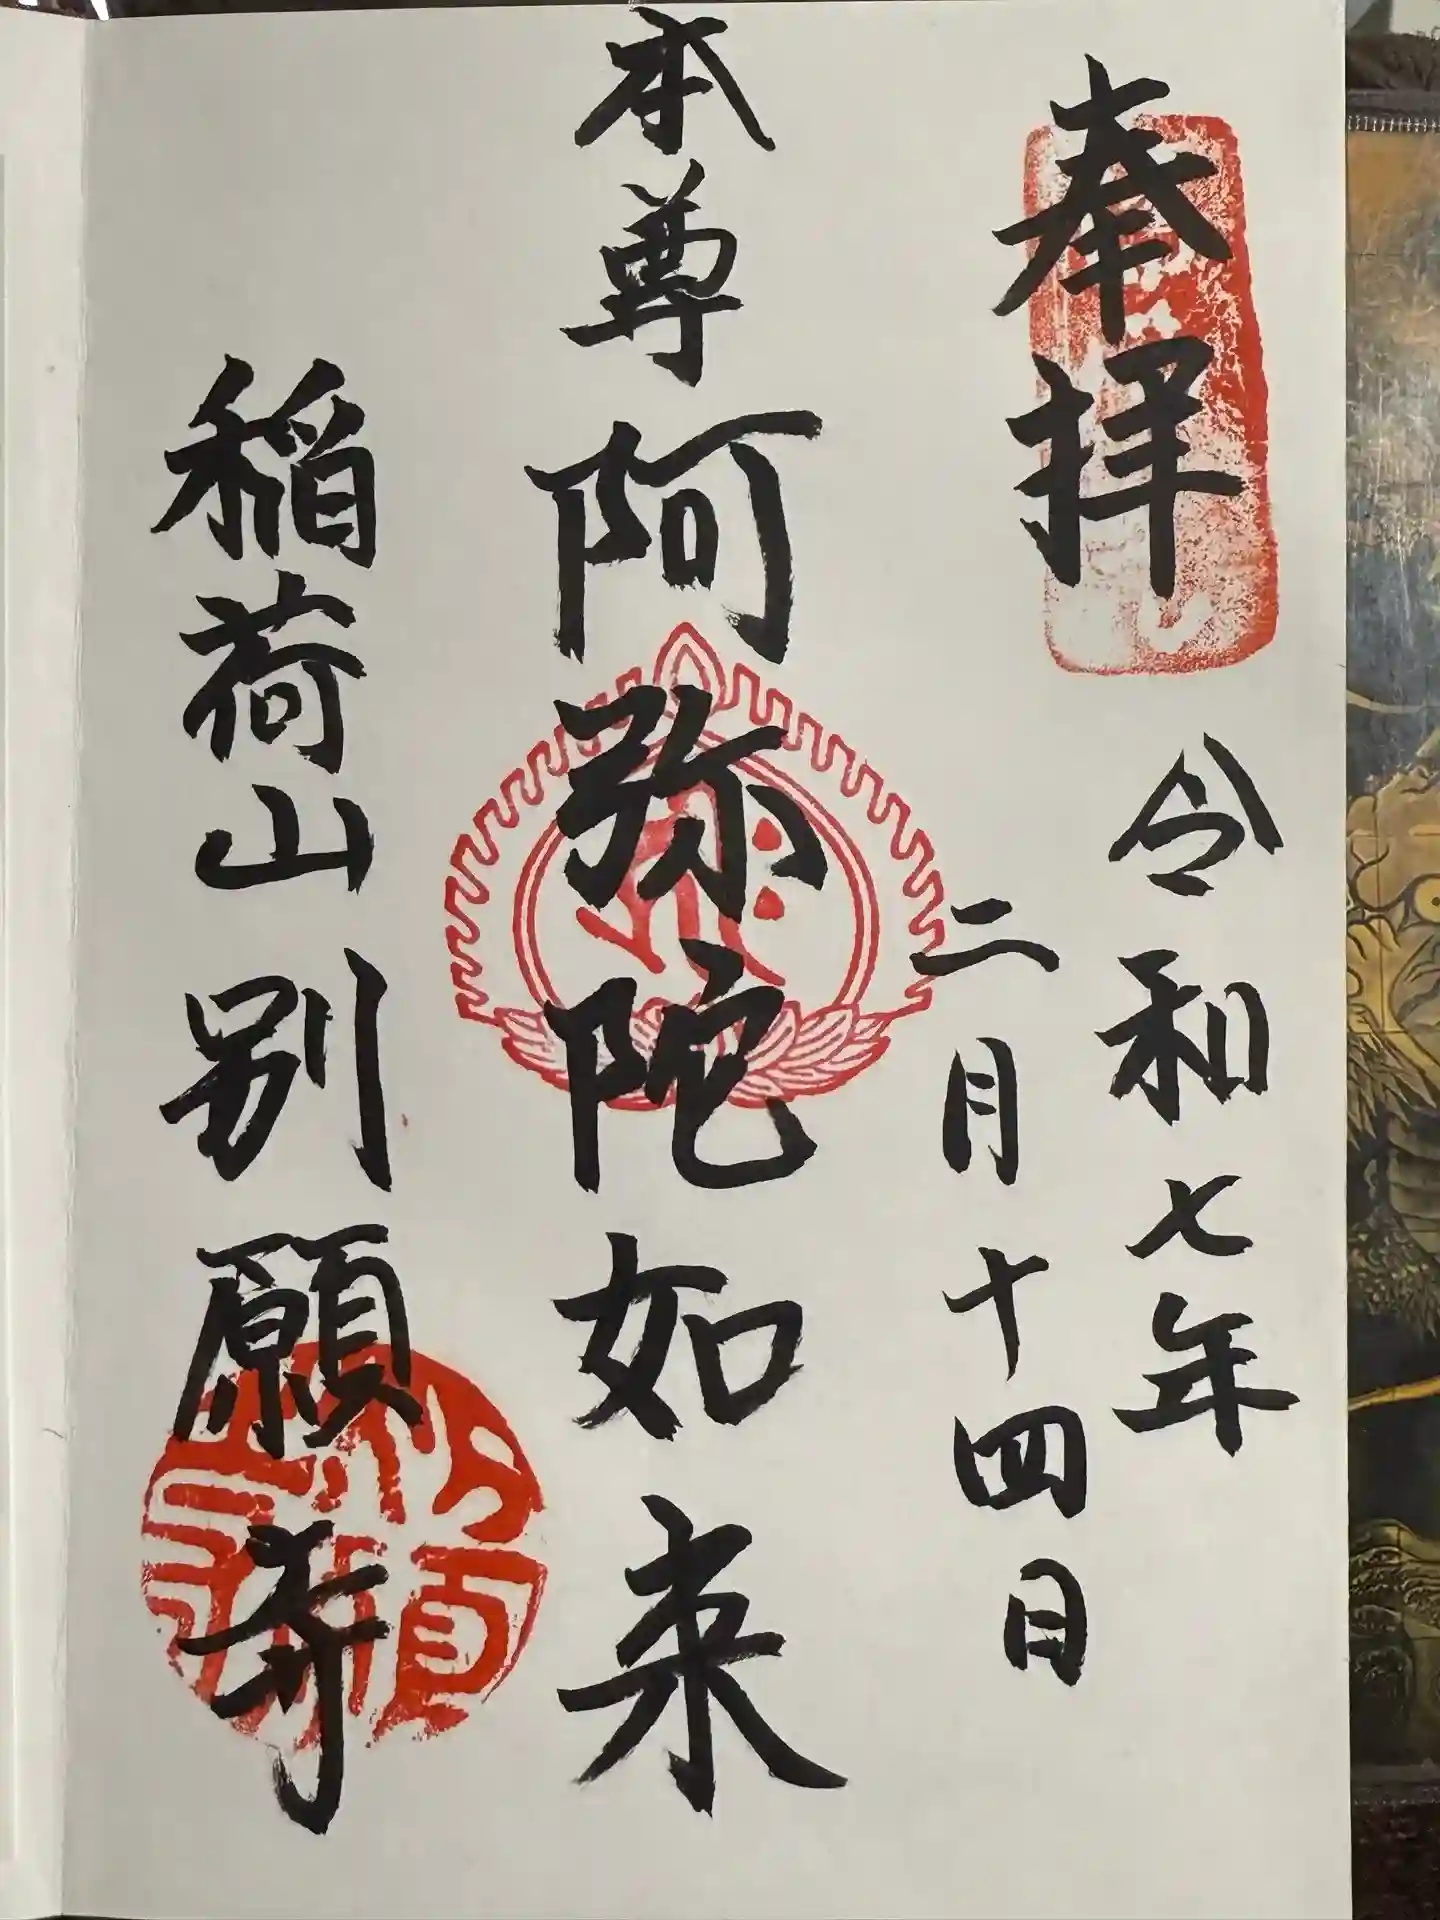 奉拝
令和七年
二月十四日
本尊阿弥陀如来
稲荷山別願寺